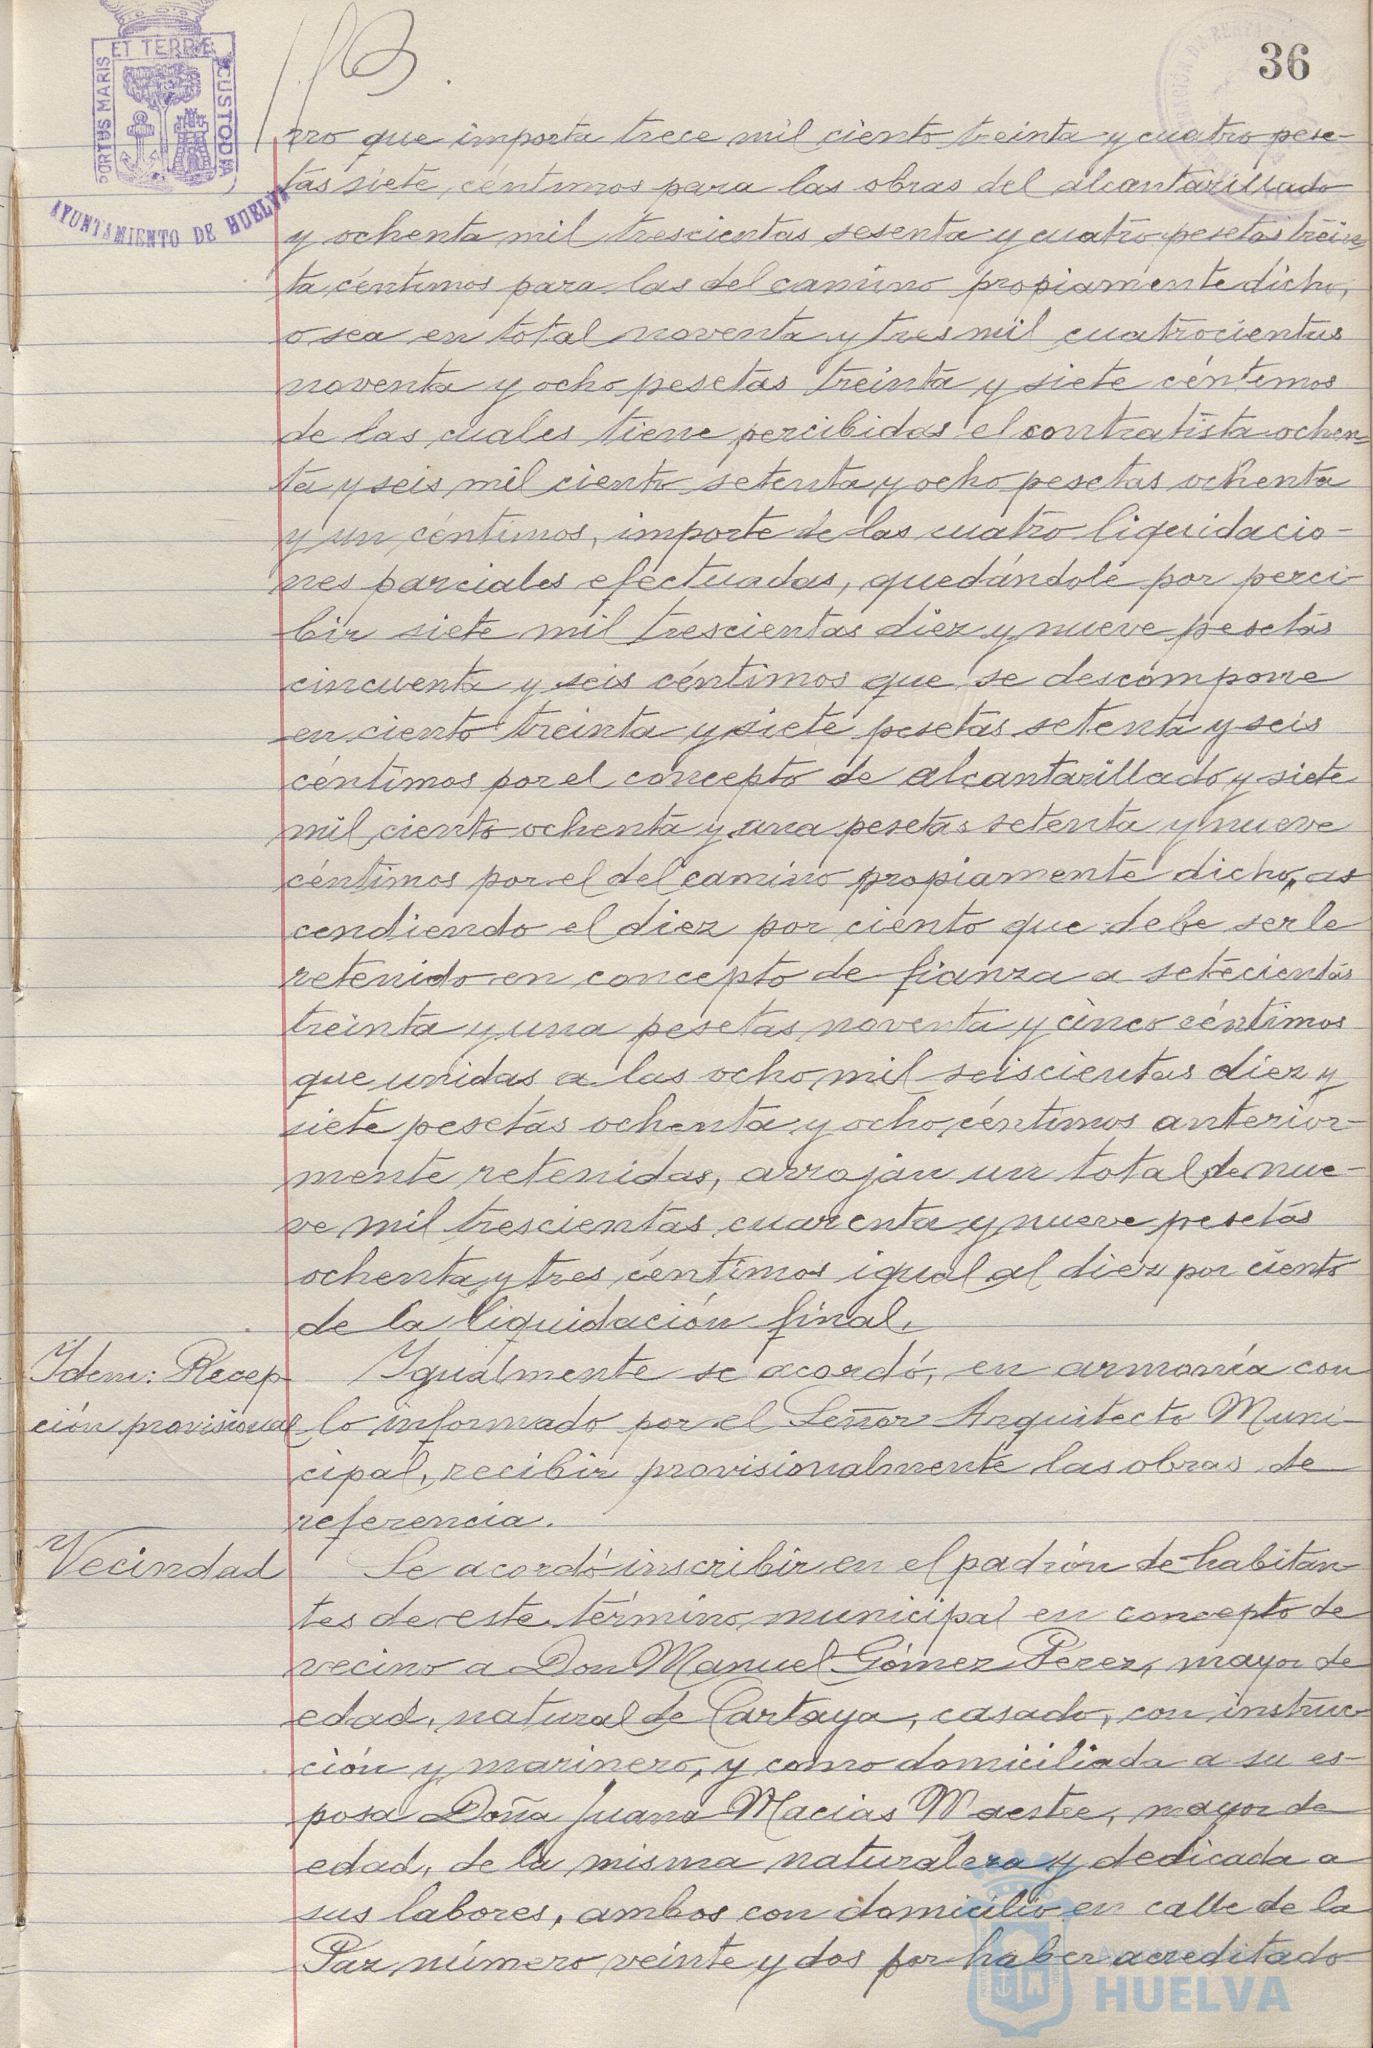 36
ET TERRÆ
PORTUS MARIS
CUSTODIA
AYUNTAMIENTO DE HUELVA
rro que importa trece mil ciento treinta y cuatro pese-
tas siete céntimos para las obras del alcantarillado
y ochenta mil trescientas sesenta y cuatro pesetas trein-
ta céntimos para las del camino propiamente dicho,
o sea en total noventa y tres mil cuatrocientas
noventa y ocho pesetas treinta y siete céntimos
de las cuales tiene percibidas el contratista ochen-
ta y seis mil ciento setenta y ocho pesetas ochenta
y un céntimos, importe de las cuatro liquidacio-
nes parciales efectuadas, quedándole por perci-
bir siete mil trescientas diez y nueve pesetas
cincuenta y seis céntimos que se descompone
en ciento treinta y siete pesetas setenta y seis
céntimos por el concepto de alcantarillado y siete
mil ciento ochenta y una pesetas setenta y nueve
céntimos por el del camino propiamente dicho, as
cendiendo el diez por ciento que debe serle
retenido en concepto de fianza a setecientas
treinta y una pesetas noventa y cinco céntimos
que unidas a las ocho mil seiscientas diez y
siete pesetas ochenta y ocho céntimos anterior-
mente retenidas, arrojan un total de nue-
ve mil trescientas cuarenta y nueve pesetas
ochenta y tres céntimos igual al diez por ciento
de la liquidación final.
Idem: Recep
ción provisional
Igualmente se acordó, en armonía con
lo informado por el Señor Arquitecto Muni-
cipal, recibir provisionalmente las obras de
referencia.
Vecindad
Se acordó inscribir en el padrón de habitan-
tes de este término municipal en concepto de
vecino a Don Manuel Gómez Pérez, mayor de
edad, natural de Cartaya, casado, con instruc-
ción y marinero, y como domiciliada a su es-
posa Doña Juana Macias Maestre, mayor de
edad, de la misma naturaleza y dedicada a
sus labores, ambos con domicilio en calle de la
Paz número veinte y dos por haber acreditado
HUELVA